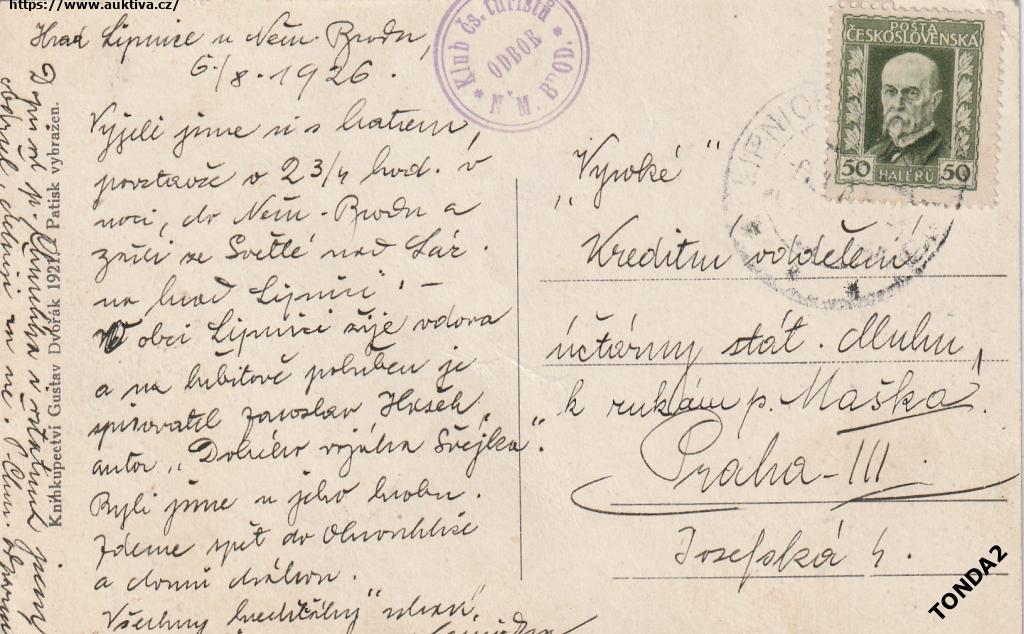 https://www.auktiva.cz/
Hrad Lipnice u Něm. Brodu,
6./8. 1926.
Vyjeli jsme si s bratrem,
povstavše o 2 3/4 hod. v
noci, do Něm. Brodu a
ze Světlé nad Sáz.
na hrad Lipnici" –
V obci Lipnici žije vdova
a na hřbitově pohřben je
spisovatel Jaroslav Hašek,
autor „Dobrého vojáka Švejka".
Byli jsme u jeho hrobu.
Jdeme zpět do
a domů drahou.
Všechny
Knihkupectví Gustav Dvořák 1921. Patisk vybražen.
Klub čs. turistů
ODBOR
* N*M. BROD. *
POŠTA
ČESKOSLOVENSKÁ
50 HALÉŘŮ 50
LIPNICE
„Vysoké"
Kreditní oddělení
účtárny stát. dluhu,
k rukám p. Maška.
Praha-III
Josefská 4.
TONDA2